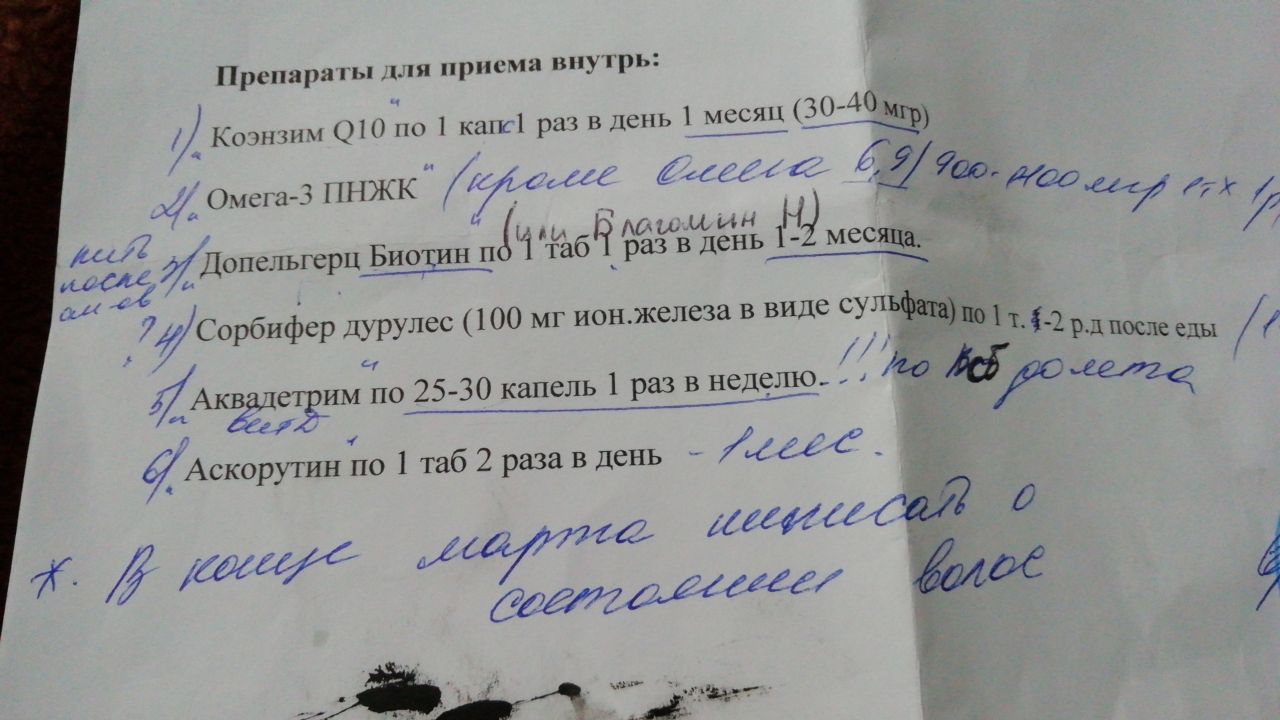 Препараты для приема внутрь:
1) Коэнзим Q10 " по 1 капс 1 раз в день 1 месяц (30-40 мгр)
2) Омега-3 ПНЖК " (кроме Омега 6,9) 900- мгр
(или Благомин H)
пить после 3) Допельгерц Биотин " по 1 таб 1 раз в день 1-2 месяца.
? 4) Сорбифер дурулес (100 мг ион.железа в виде сульфата) по 1 т. -2 р.д после еды (1
5) Аквадетрим " по 25-30 капель 1 раз в неделю. !!! по сб до лета
вит D
6) Аскорутин " по 1 таб 2 раза в день - 1 мес.
*. В конце марта написать о
состоянии волос